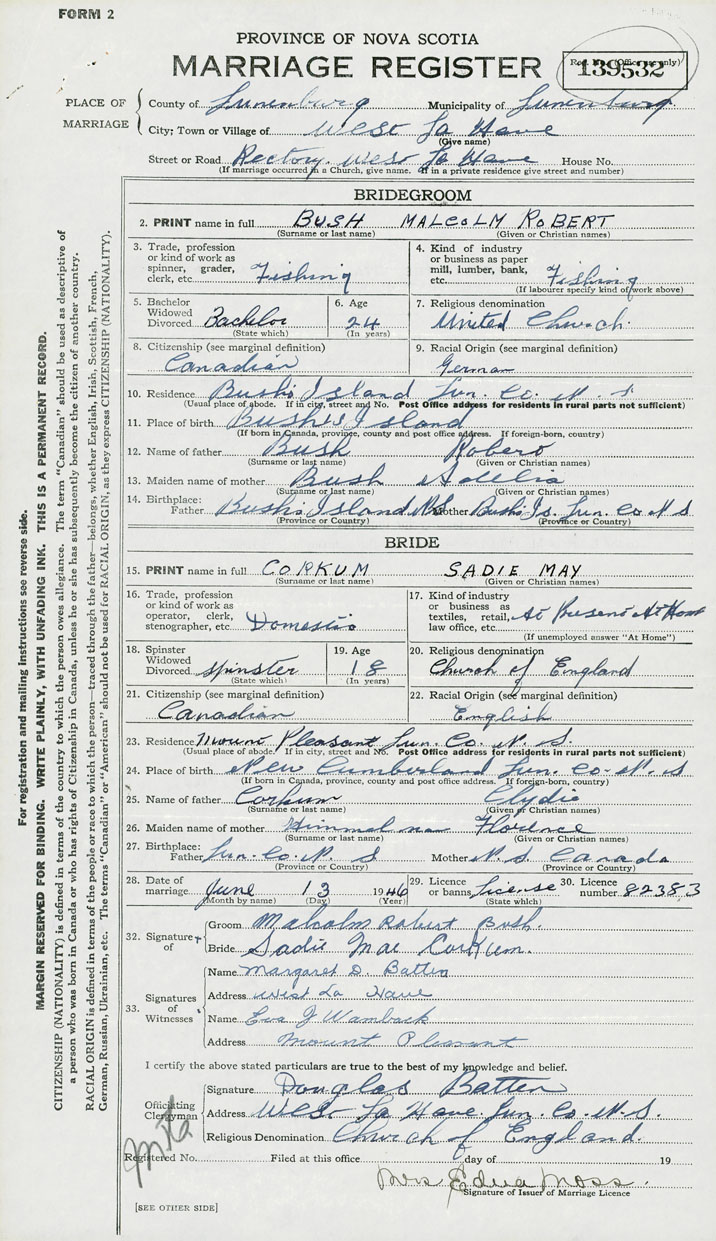 FORM 2
PROVINCE OF NOVA SCOTIA
MARRIAGE REGISTER
Reg. No. (Office use only)
139532
PLACE OF MARRIAGE
County of Lunenburg Municipality of Lunenburg
City; Town or Village of West La Have
(Give name)
Street or Road Rectory. West La Have House No.
(If marriage occurred in a Church, give name. If in a private residence give street and number)
BRIDEGROOM
2. PRINT name in full BUSH MALCOLM ROBERT
(Surname or last name) (Given or Christian names)
3. Trade, profession or kind of work as spinner, grader, clerk, etc. Fishing
4. Kind of industry or business as paper mill, lumber, bank, etc. Fishing
(If labourer specify kind of work above)
5. Bachelor Widowed Divorced Bachelor
(State which)
6. Age 24
(In years)
7. Religious denomination United Church.
8. Citizenship (see marginal definition) Canadian
9. Racial Origin (see marginal definition) German
10. Residence Bush's Island Lun. Co. N. S
(Usual place of abode. If in city, street and No. Post Office address for residents in rural parts not sufficient)
11. Place of birth Bush's Island
(If born in Canada, province, county and post office address. If foreign-born, country)
12. Name of father Bush Robert
(Surname or last name) (Given or Christian names)
13. Maiden name of mother Bush Adelia
(Surname or last name) (Given or Christian names)
14. Birthplace: Father Bush's Island N.S. Mother Bush's Is. Lun. Co N S
(Province or Country) (Province or Country)
BRIDE
15. PRINT name in full CORKUM SADIE MAY
(Surname or last name) (Given or Christian names)
16. Trade, profession or kind of work as operator, clerk, stenographer, etc. Domestic
17. Kind of industry or business as textiles, retail, law office, etc. At Present At Home
(If unemployed answer "At Home")
18. Spinster Widowed Divorced Spinster
(State which)
19. Age 18
(In years)
20. Religious denomination Church of England
21. Citizenship (see marginal definition) Canadian
22. Racial Origin (see marginal definition) English
23. Residence Mount Pleasant Lun. Co. N. S.
(Usual place of abode. If in city, street and No. Post Office address for residents in rural parts not sufficient)
24. Place of birth New Cumberland Lun. Co. N. S
(If born in Canada, province, county and post office address. If foreign-born, country)
25. Name of father Corkum Clydie
(Surname or last name) (Given or Christian names)
26. Maiden name of mother Himmelman Florence
(Surname or last name) (Given or Christian names)
27. Birthplace: Father Lun. Co. N. S Mother N. S Canada
(Province or Country) (Province or Country)
28. Date of marriage June 13 1946
(Month by name) (Day) (Year)
29. Licence or banns License
(State which)
30. Licence number 82383
32. Signature of
Groom Malcolm Robert Bush.
Bride Sadie Mae Corkum.
33. Signatures of Witnesses
Name Margaret D. Batten
Address West La Have
Name Eva J Wamback
Address Mount Pleasant
I certify the above stated particulars are true to the best of my knowledge and belief.
Officiating Clergyman
Signature Douglas Batten
Address West La Have. Lun. Co. N. S.
Religious Denomination Church of England.
Registered No. Filed at this office day of 19
Mrs Edna Moss.
Signature of Issuer of Marriage Licence
[SEE OTHER SIDE]
For registration and mailing instructions see reverse side.
MARGIN RESERVED FOR BINDING. WRITE PLAINLY, WITH UNFADING INK. THIS IS A PERMANENT RECORD.
CITIZENSHIP (NATIONALITY) is defined in terms of the country to which the person owes allegiance. The term "Canadian" should be used as descriptive of
a person who was born in Canada or who has rights of Citizenship in Canada, unless he or she has subsequently become the citizen of another country.
RACIAL ORIGIN is defined in terms of the people or race to which the person—traced through the father—belongs, whether English, Irish, Scottish, French,
German, Russian, Ukrainian, etc. The terms "Canadian" or "American" should not be used for RACIAL ORIGIN, as they express CITIZENSHIP (NATIONALITY).